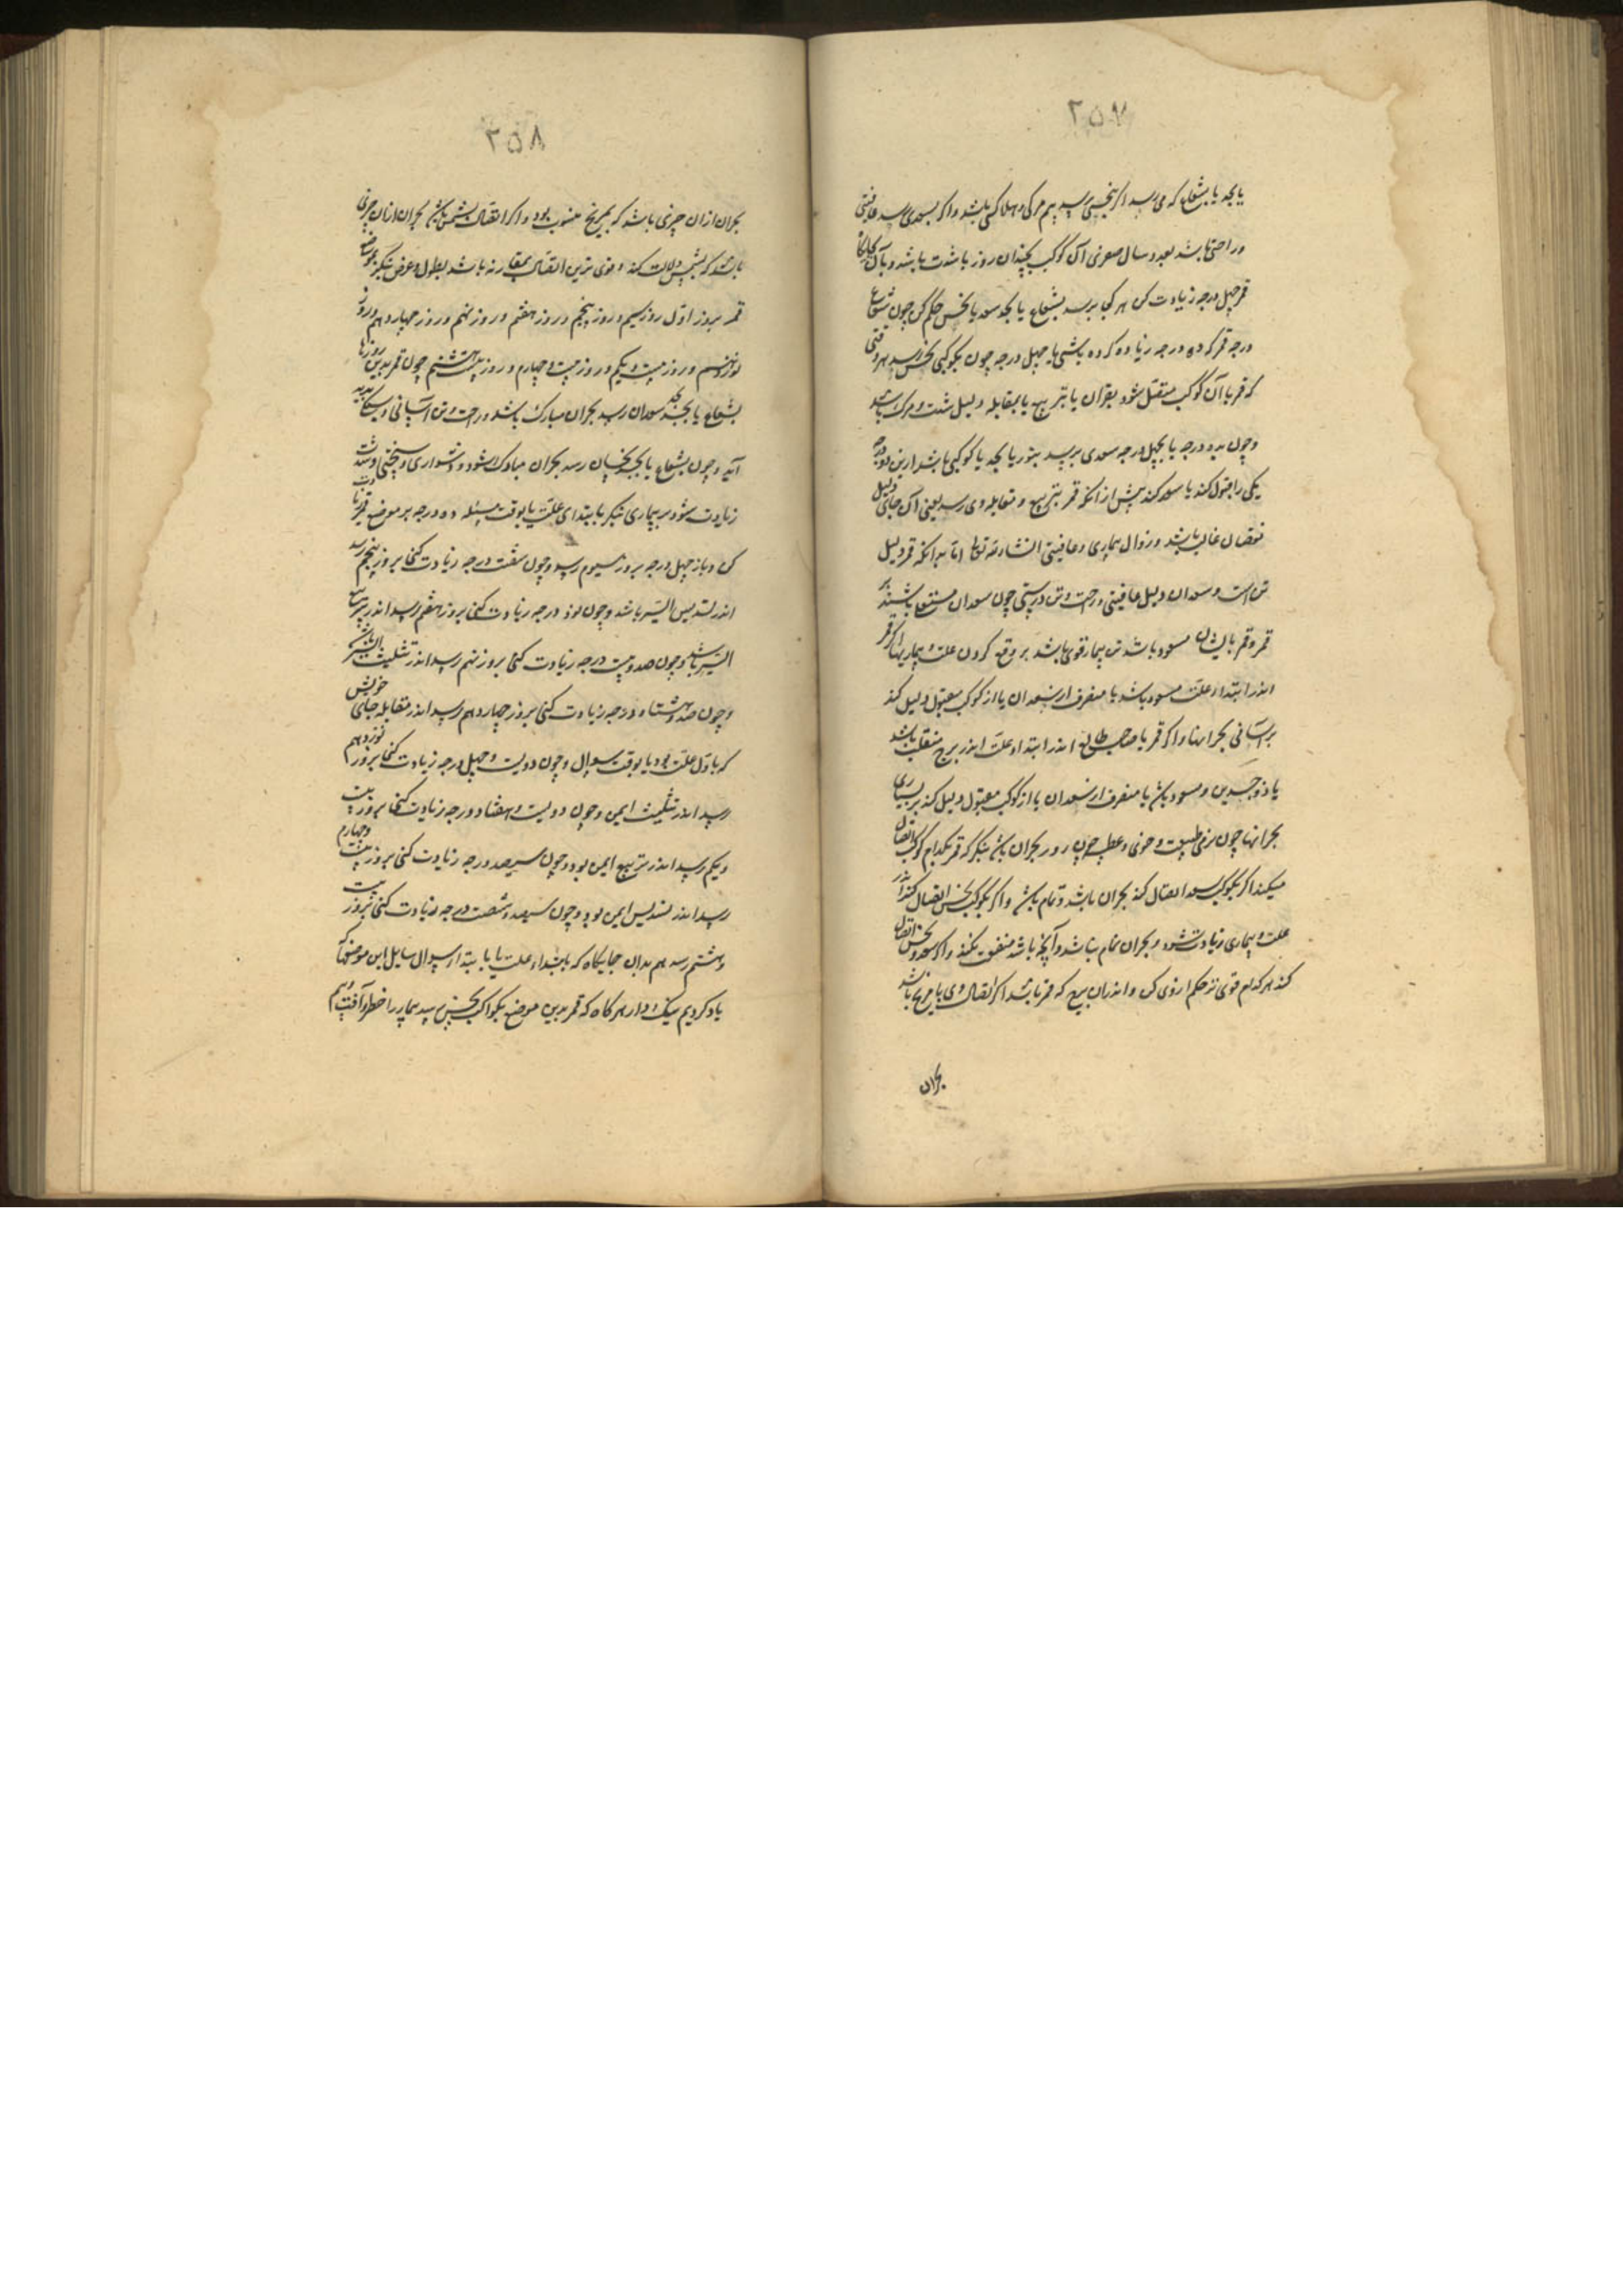 ۲۵۷
یا بحد یا بشعاع که می رسد اگر بنحسی رسد بیم مرگی و هلاکی باشد و اگر بسعدی رسد عافیتی
و راحتی باشد بعدد سال صغری آن کوکب بچندان روز یا شدت باشد و بآن جایگاه
قمر چهل درجه زیادت کن هر کجا برسد بشعاع یا بحد سعد یا نحس حکم کن چون شعاع
درجه قمر که ده درجه زیاده کرده باشی یا چهل درجه چون بکوکبی نحس رسد بهر وقتی
که قمر با آن کوکب متصل شود بقران یا بتربیع یا بمقابله دلیل شدت و مرگ باشد
و چون بده درجه یا بچهل درجه سعدی برسد بنور یا بحد یا کوکبی باشد ازین دو درجه
یکی را قبول کند یا سعد کند پیش از انکه قمر بتربیع و مقابله وی رسد یعنی آن جای دلیل
نقصان غالب باشد و زوال بیماری و عافیتی انشاء الله تعالی اما بدانکه قمر دلیل
تن است و سعدان دلیل عافیتی و راحت و تن درستی چون سعدان مستعلی باشند بر
قمر و قمر بایشان مسعود باشد تن بیمار قوی باشد بر دفع کردن علت و بیماریها اگر قمر
اندر ابتداء علت مسعود باشد یا منصرف از سعدان یا از کوکب مقبول دلیل کند
بر آسانی بحرانها و اگر قمر یا صاحب طالع اندر ابتداء علت اندر برج منقلب باشد
یا ذو جسدین و مسعود باشد یا منصرف از سعدان یا از کوکب مقبول دلیل کند بر بسیاری
بحرانها چون نرمی طبیعت و خوی و عطسه چون روز بحران باشد بنگر که قمر بکدام کوکب اتصال
میکند اگر بکوکب سعد اتصال کند بحران باشد و تمام باشد و اگر بکوکب نحس اتصال کند اندر
علت و بیماری زیادت شود و بحران تمام نباشد و آنچه باشد منفعت نکند و اگر بسعد و نحس اتصال
کند هر کدام قوی تر حکم از وی کن و اندران برج که قمر باشد اگر اتصال وی با مریخ باشد
بحران
۲۵۸
بحران ازان چیزی باشد که بمریخ منسوب بود و اگر اتصال بشمس باشد بحران ازان چیزی
باشد که بشمس دلالت کند و قوی ترین اتصال بمقارنه باشد بطول و عرض بنگر بموضع
قمر بروز اول روز سیم و روز پنجم و روز هفتم و روز نهم و روز چهاردهم و روز
نوزدهم و روز بیست و یکم و روز بیست و چهارم و روز بیست و هشتم چون قمر بدین روزها
بشعاع یا بحد سعدان رسد بحران مبارک باشد و راحت و تن آسانی و سبکی پدید
آید و چون بشعاع یا بحد نحسان رسد بحران مبارک نشود و دشواری و سختی و شدت
زیادت شود بر بیماری بنگر بابتدای علت یا بوقت مسئله ده درجه بر موضع قمر زیادت
کن و باز چهل درجه بروز سیوم رسد و چون شصت درجه زیادت کنی بروز پنجم رسد
اندر تسدیس ایسر باشد و چون نود درجه زیادت کنی بروز هفتم رسد اندر تربیع
ایسر باشد و چون صد و بیست درجه زیادت کنی بروز نهم رسد اندر تثلیث ایسر باشد
و چون صد و هشتاد درجه زیادت کنی بروز چهاردهم رسد اندر مقابله جای خویش
که باول علت بود یا بوقت سوال و چون دویست و چهل درجه زیادت کنی بروز نوزدهم
رسد اندر تثلیث ایمن و چون دویست و هفتاد درجه زیادت کنی بروز بیست
و یکم رسد اندر تربیع ایمن بود و چون سیصد درجه زیادت کنی بروز بیست و چهارم
رسد اندر تسدیس ایمن بود و چون سیصد و شصت درجه زیادت کنی بروز بیست
و هشتم رسد هم بدان جایگاه که بابتداء علت یا بابتدا از سوال سایل این موضعها که
یاد کردیم نیک دار هر گاه که قمر بدین موضع بکواکب نحس رسد بیمار را خطر و آفت و بیم